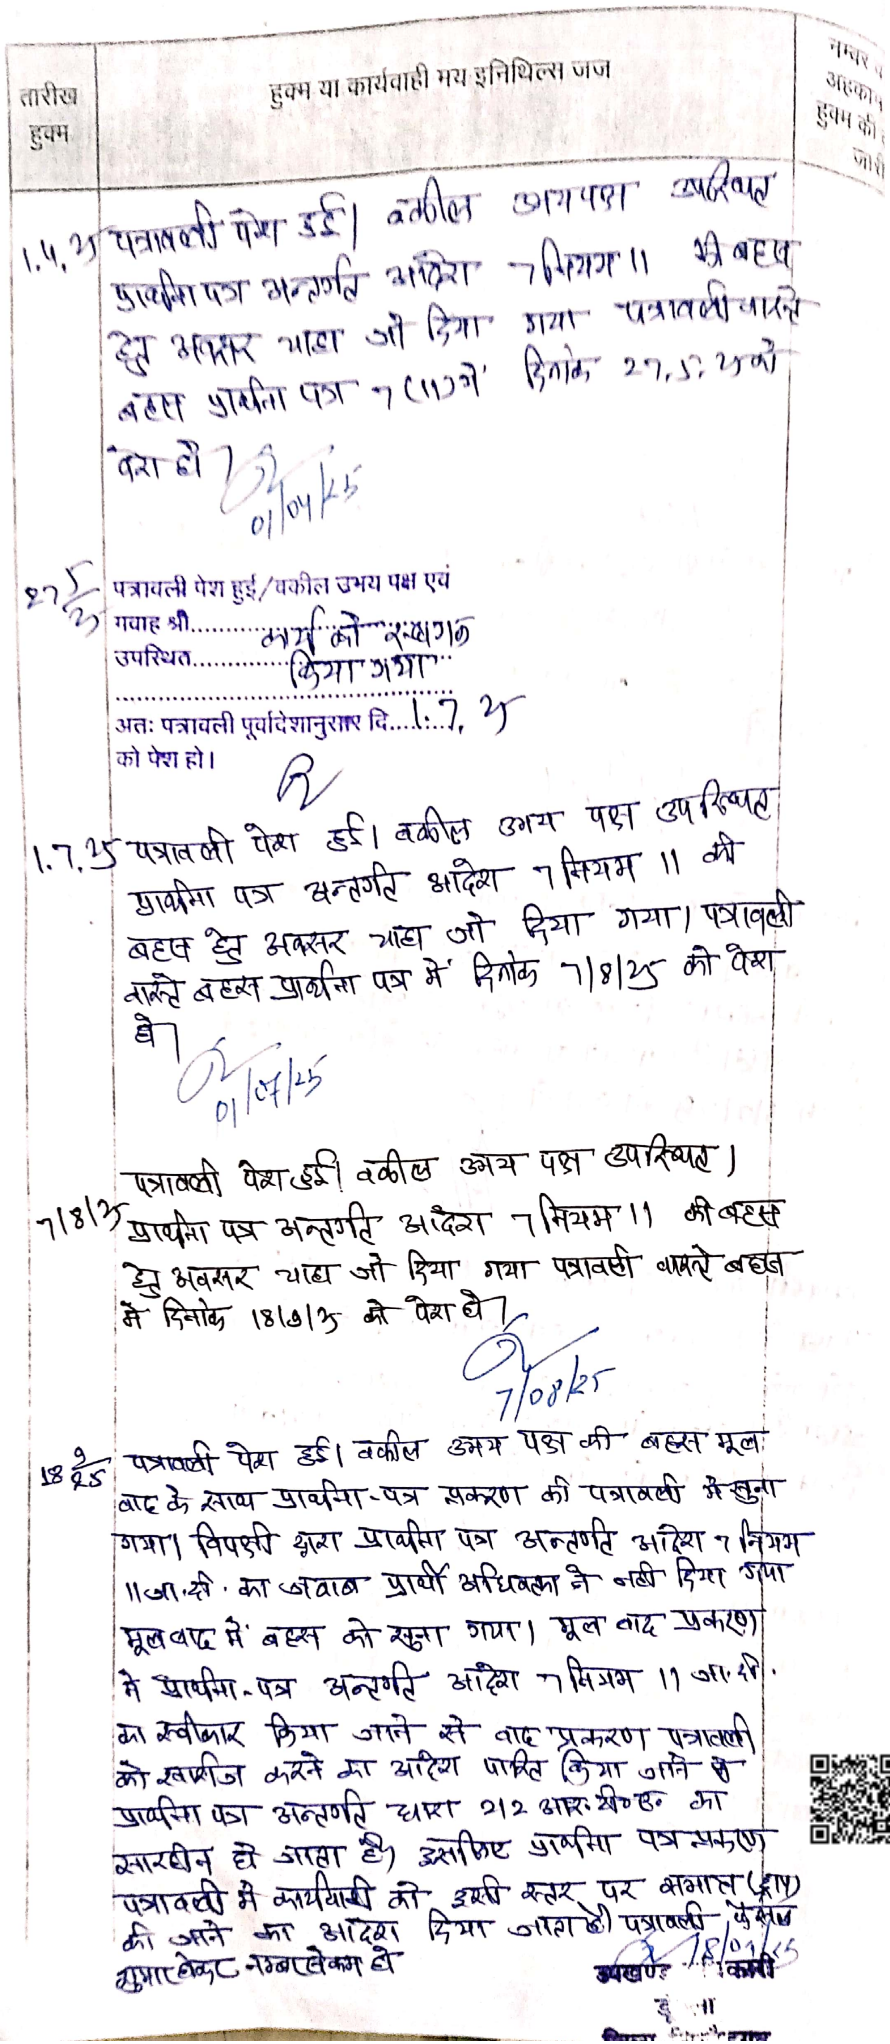 तारीख
हुक्म
हुक्म या कार्यवाही मय इनिथिल्स जज
नम्बर व
अहकाम
हुक्म की
जारी
1.4.25 पत्रावली पेश हुई। वकील उभयपक्ष उपस्थित
प्रार्थना पत्र अन्तर्गत आदेश 7 नियम 11 की बहस
हेतु अवसर चाहा जो दिया गया पत्रावली वास्ते
बहस प्रार्थना पत्र 7(11) में दिनांक 27.5.25 को
पेश हो।
01/04/25
27 5/25 पत्रावली पेश हुई/वकील उभय पक्ष एवं
गवाह श्री.............. कार्य को स्थगन
उपस्थित.............. किया गया
अतः पत्रावली पूर्वादेशानुसार दि....1.7.25
को पेश हो।
1.7.25 पत्रावली पेश हुई। वकील उभय पक्ष उपस्थित
प्रार्थना पत्र अन्तर्गत आदेश 7 नियम 11 की
बहस हेतु अवसर चाहा जो दिया गया। पत्रावली
वास्ते बहस प्रार्थना पत्र में दिनांक 7/8/25 को पेश
हो।
01/07/25
पत्रावली पेश हुई। वकील उभय पक्ष उपस्थित।
7/8/25 प्रार्थना पत्र अन्तर्गत आदेश 7 नियम 11 की बहस
हेतु अवसर चाहा जो दिया गया पत्रावली वास्ते बहस
में दिनांक 18/9/25 को पेश हो।
7/08/25
18 9/25 पत्रावली पेश हुई। वकील उभय पक्ष की बहस मूल
वाद के साथ प्रार्थना-पत्र प्रकरण की पत्रावली में सुना
गया। विपक्षी द्वारा प्रार्थना पत्र अन्तर्गत आदेश 7 नियम
11 जा.दी. का जवाब प्रार्थी अधिवक्ता ने नही दिया गया
मूल वाद में बहस को सुना गया। मूल वाद प्रकरण
में प्रार्थना-पत्र अन्तर्गत आदेश 7 नियम 11 जा.दी.
का स्वीकार किया जाने से वाद प्रकरण पत्रावली
को खारीज करने का आदेश पारित किया जाने से
प्रार्थना पत्र अन्तर्गत धारा 212 आर.टी०ए० का
सारहीन हो जाता है। इसलिए प्रार्थना पत्र प्रकरण
पत्रावली में कार्यवाही को इसी स्तर पर समाप्त (ड्राप)
की जाने का आदेश दिया जाता है। पत्रावली फैसल
शुमार होकर नम्बर से कम हो
18/09/25
उपखण्ड